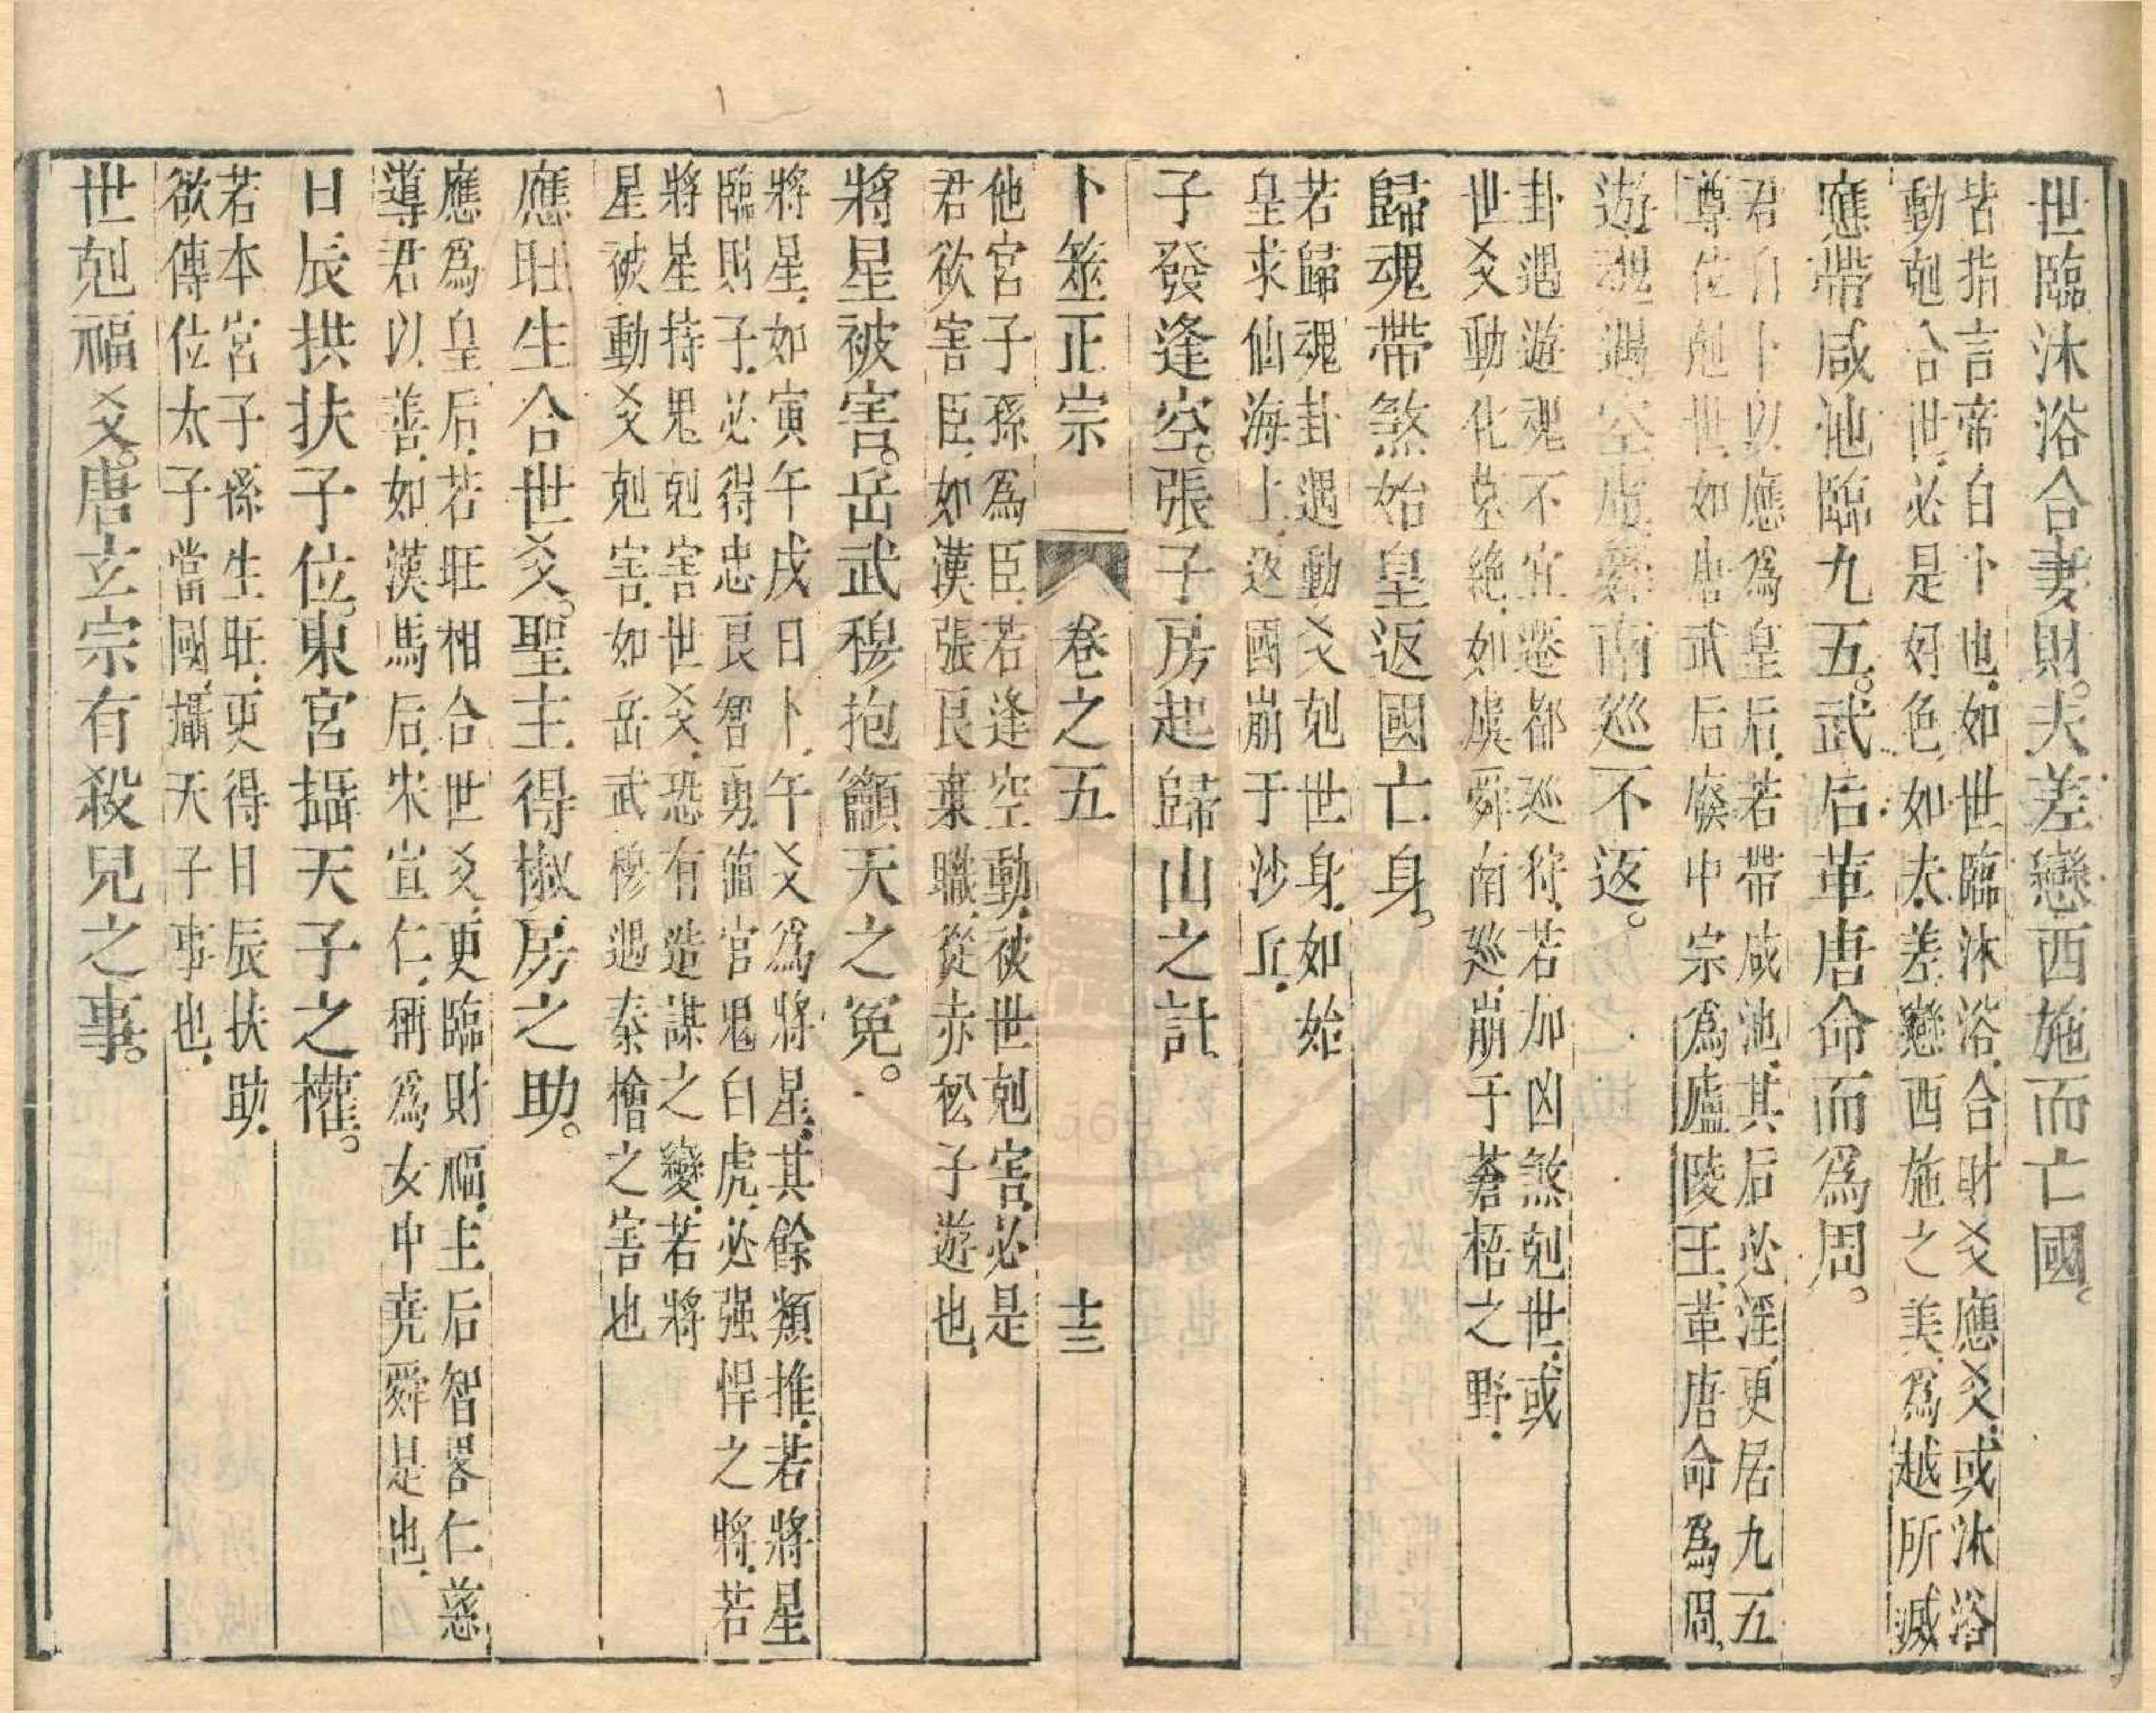 世臨沐浴合妻財。夫差戀西施而亡國。
皆指言帝自卜也。如世臨沐浴。合財爻應爻。或沐浴
動剋合世。必是好色。如夫差戀西施之美。爲越所滅
應帶咸池臨九五。武后革唐命而爲周。
君自卜以應爲皇后。若帶咸池。其后必淫。更居九五
尊位剋世。如唐武后廢中宗爲廬陵王。革唐命爲周。
遊魂遇空虛。舜南巡不返。
卦遇遊魂不宜遷都巡狩。若加凶煞剋世。或
世爻動化墓絶。如虞舜南巡。崩于蒼梧之野。
歸魂帶煞始皇返國亡身。
若歸魂卦遇動爻剋世身。如始
皇求仙海上。返國崩于沙丘。
子發逢空。張子房起歸山之計
卜筮正宗 卷之五 十三
他宮子孫爲臣。若逢空動。被世剋害。必是
君欲害臣。如漢張良棄職。從赤松子遊也。
將星被害。岳武穆抱籲天之冤。
將星。如寅午戌日卜。午爻爲將星。其餘類推。若將星
臨財子。必得忠良智勇。值官鬼白虎。必强悍之將。若
將星持鬼剋害世爻。恐有造謀之變。若將
星被動爻剋害。如岳武穆遇秦檜之害也
應旺生合世爻。聖主得椒房之助。
應爲皇后。若旺相合世爻。更臨財福。主后智畧仁慈。
導君以善。如漢馬后。宋宣仁。稱爲女中堯舜是也。
日辰拱扶子位。東宮攝天子之權。
若本宮子孫生旺。更得日辰扶助。
欲傳位太子當國。攝天子事也。
世剋福爻。唐玄宗有殺兒之事。